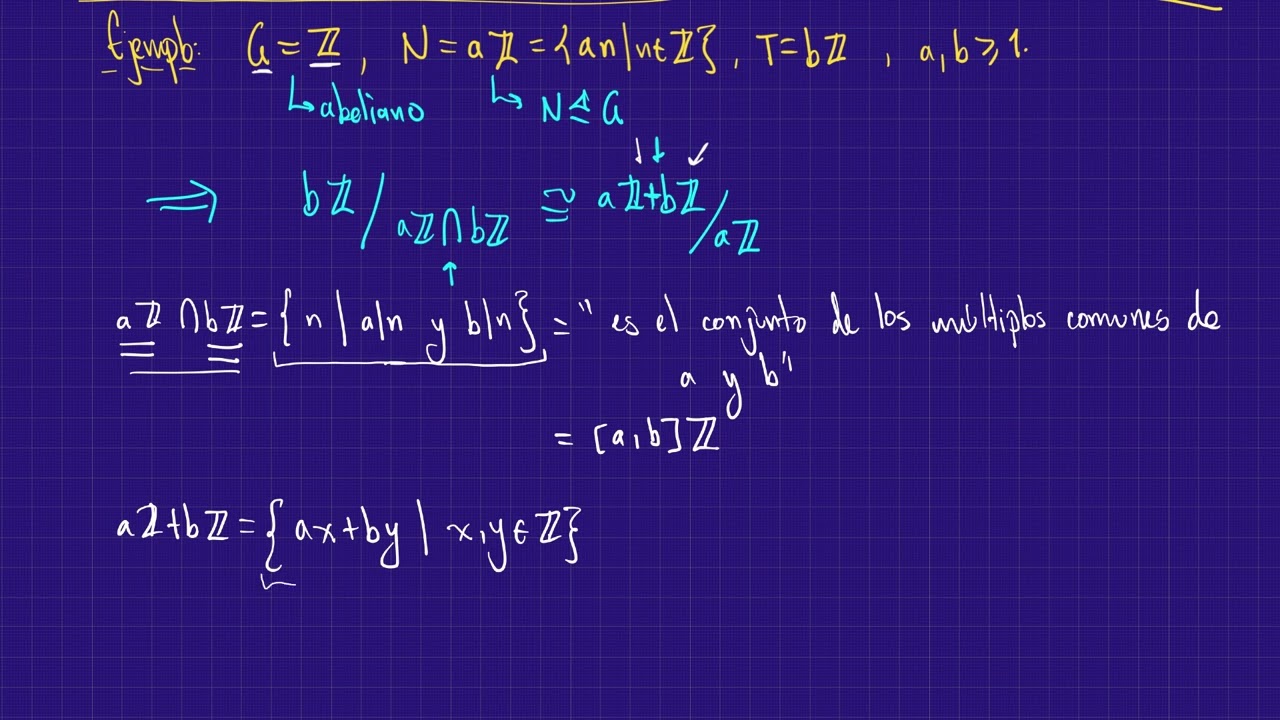 Ejemplo: G = ℤ, N = aℤ = {an | n ∈ ℤ}, T = bℤ, a, b ≥ 1.
↳ abeliano ↳ N ⊴ G
⟹ bℤ / aℤ ∩ bℤ ≅ aℤ + bℤ / aℤ
aℤ ∩ bℤ = { n | a|n y b|n } = " es el conjunto de los múltiplos comunes de
a y b"
= [a, b] ℤ
aℤ + bℤ = { ax + by | x, y ∈ ℤ}